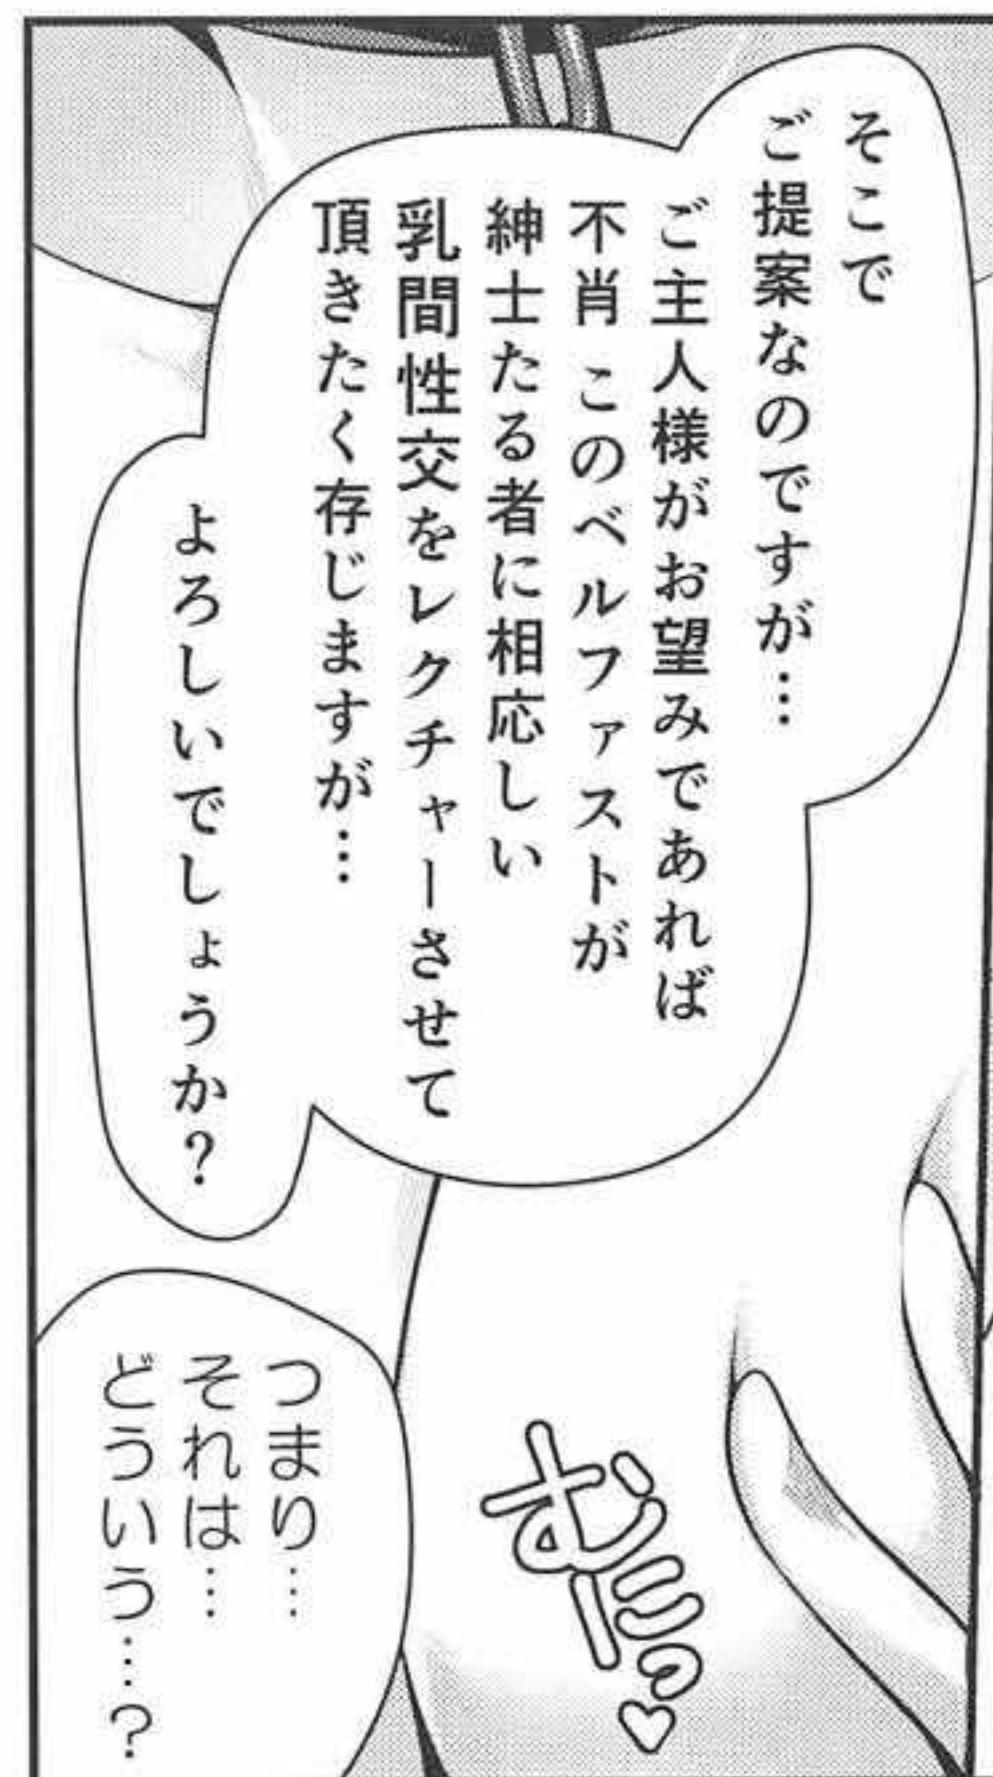 そこで
ご提案なのですが…
ご主人様がお望みであれば
不肖 このベルファストが
紳士たる者に相応しい
乳間性交をレクチャーさせて
頂きたく存じますが…
よろしいでしょうか？
つまり…
それは…
どういう…？